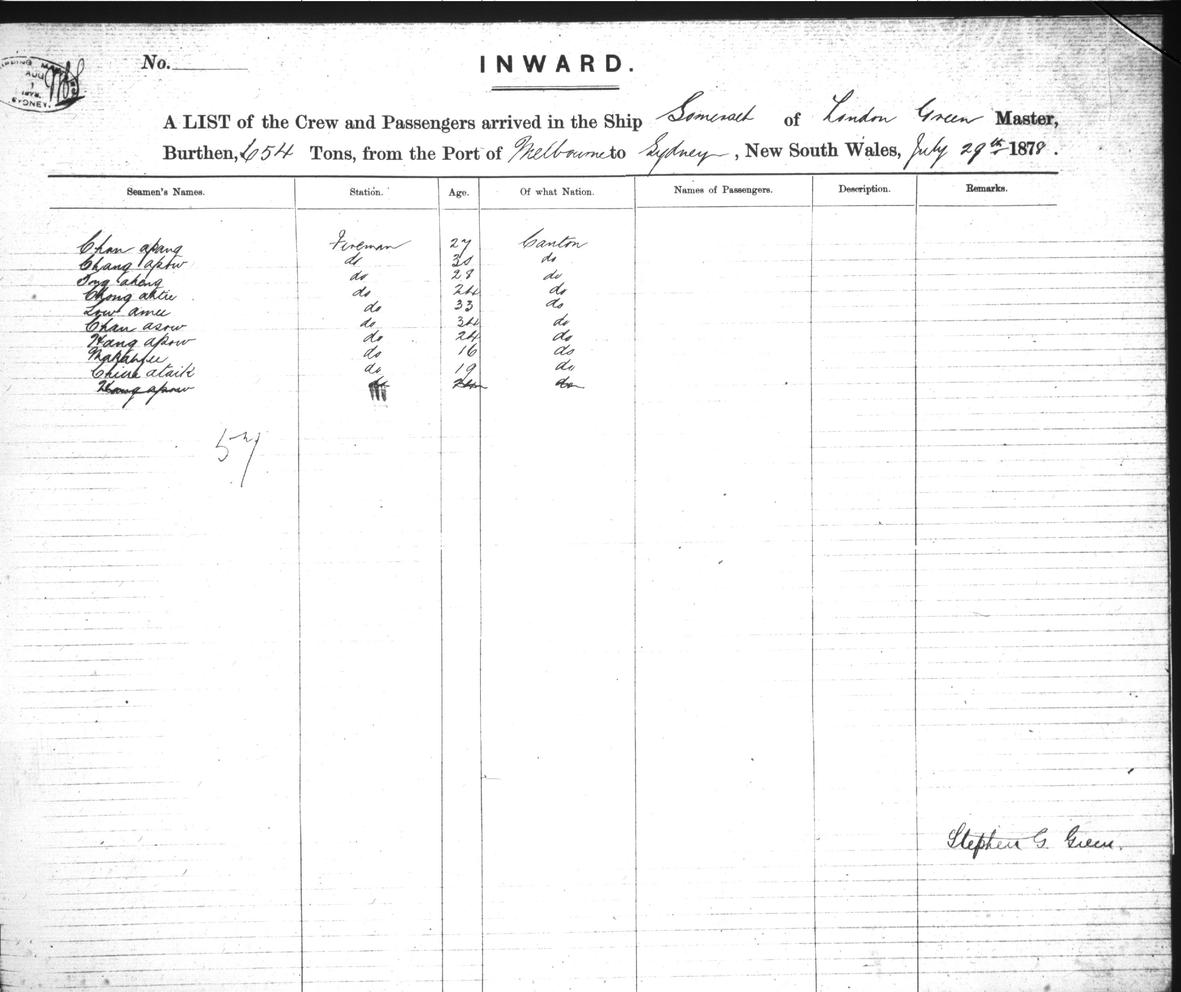 No.
INWARD.
AUG
1
SYDNEY.
A LIST of the Crew and Passengers arrived in the Ship Somerset of London Green Master,
Burthen, 654 Tons, from the Port of Melbourne to Sydney, New South Wales, July 29th 1878.
Seamen's Names. Station. Age. Of what Nation. Names of Passengers. Description. Remarks.
Chan apang Fireman 27 Canton
Chang apow do do
Tong aheng do 28 do
Chong ahtie do 24 do
Low amee do 33 do
Chan asow do 34 do
Hang apow do 24 do
do 16 do
ataik do 19 do
apow do
57
Stephen G. Green.